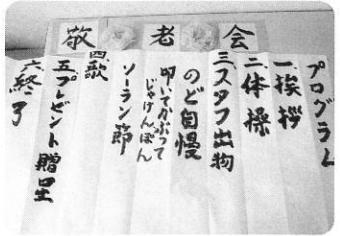 敬老会
プログラム
一、挨拶
二、体操
三、スタフ出物
のど自慢
叩いてかぶって
じゃけんぽん
ソーラン節
四、歌
五、プレゼント贈呈
六、終了